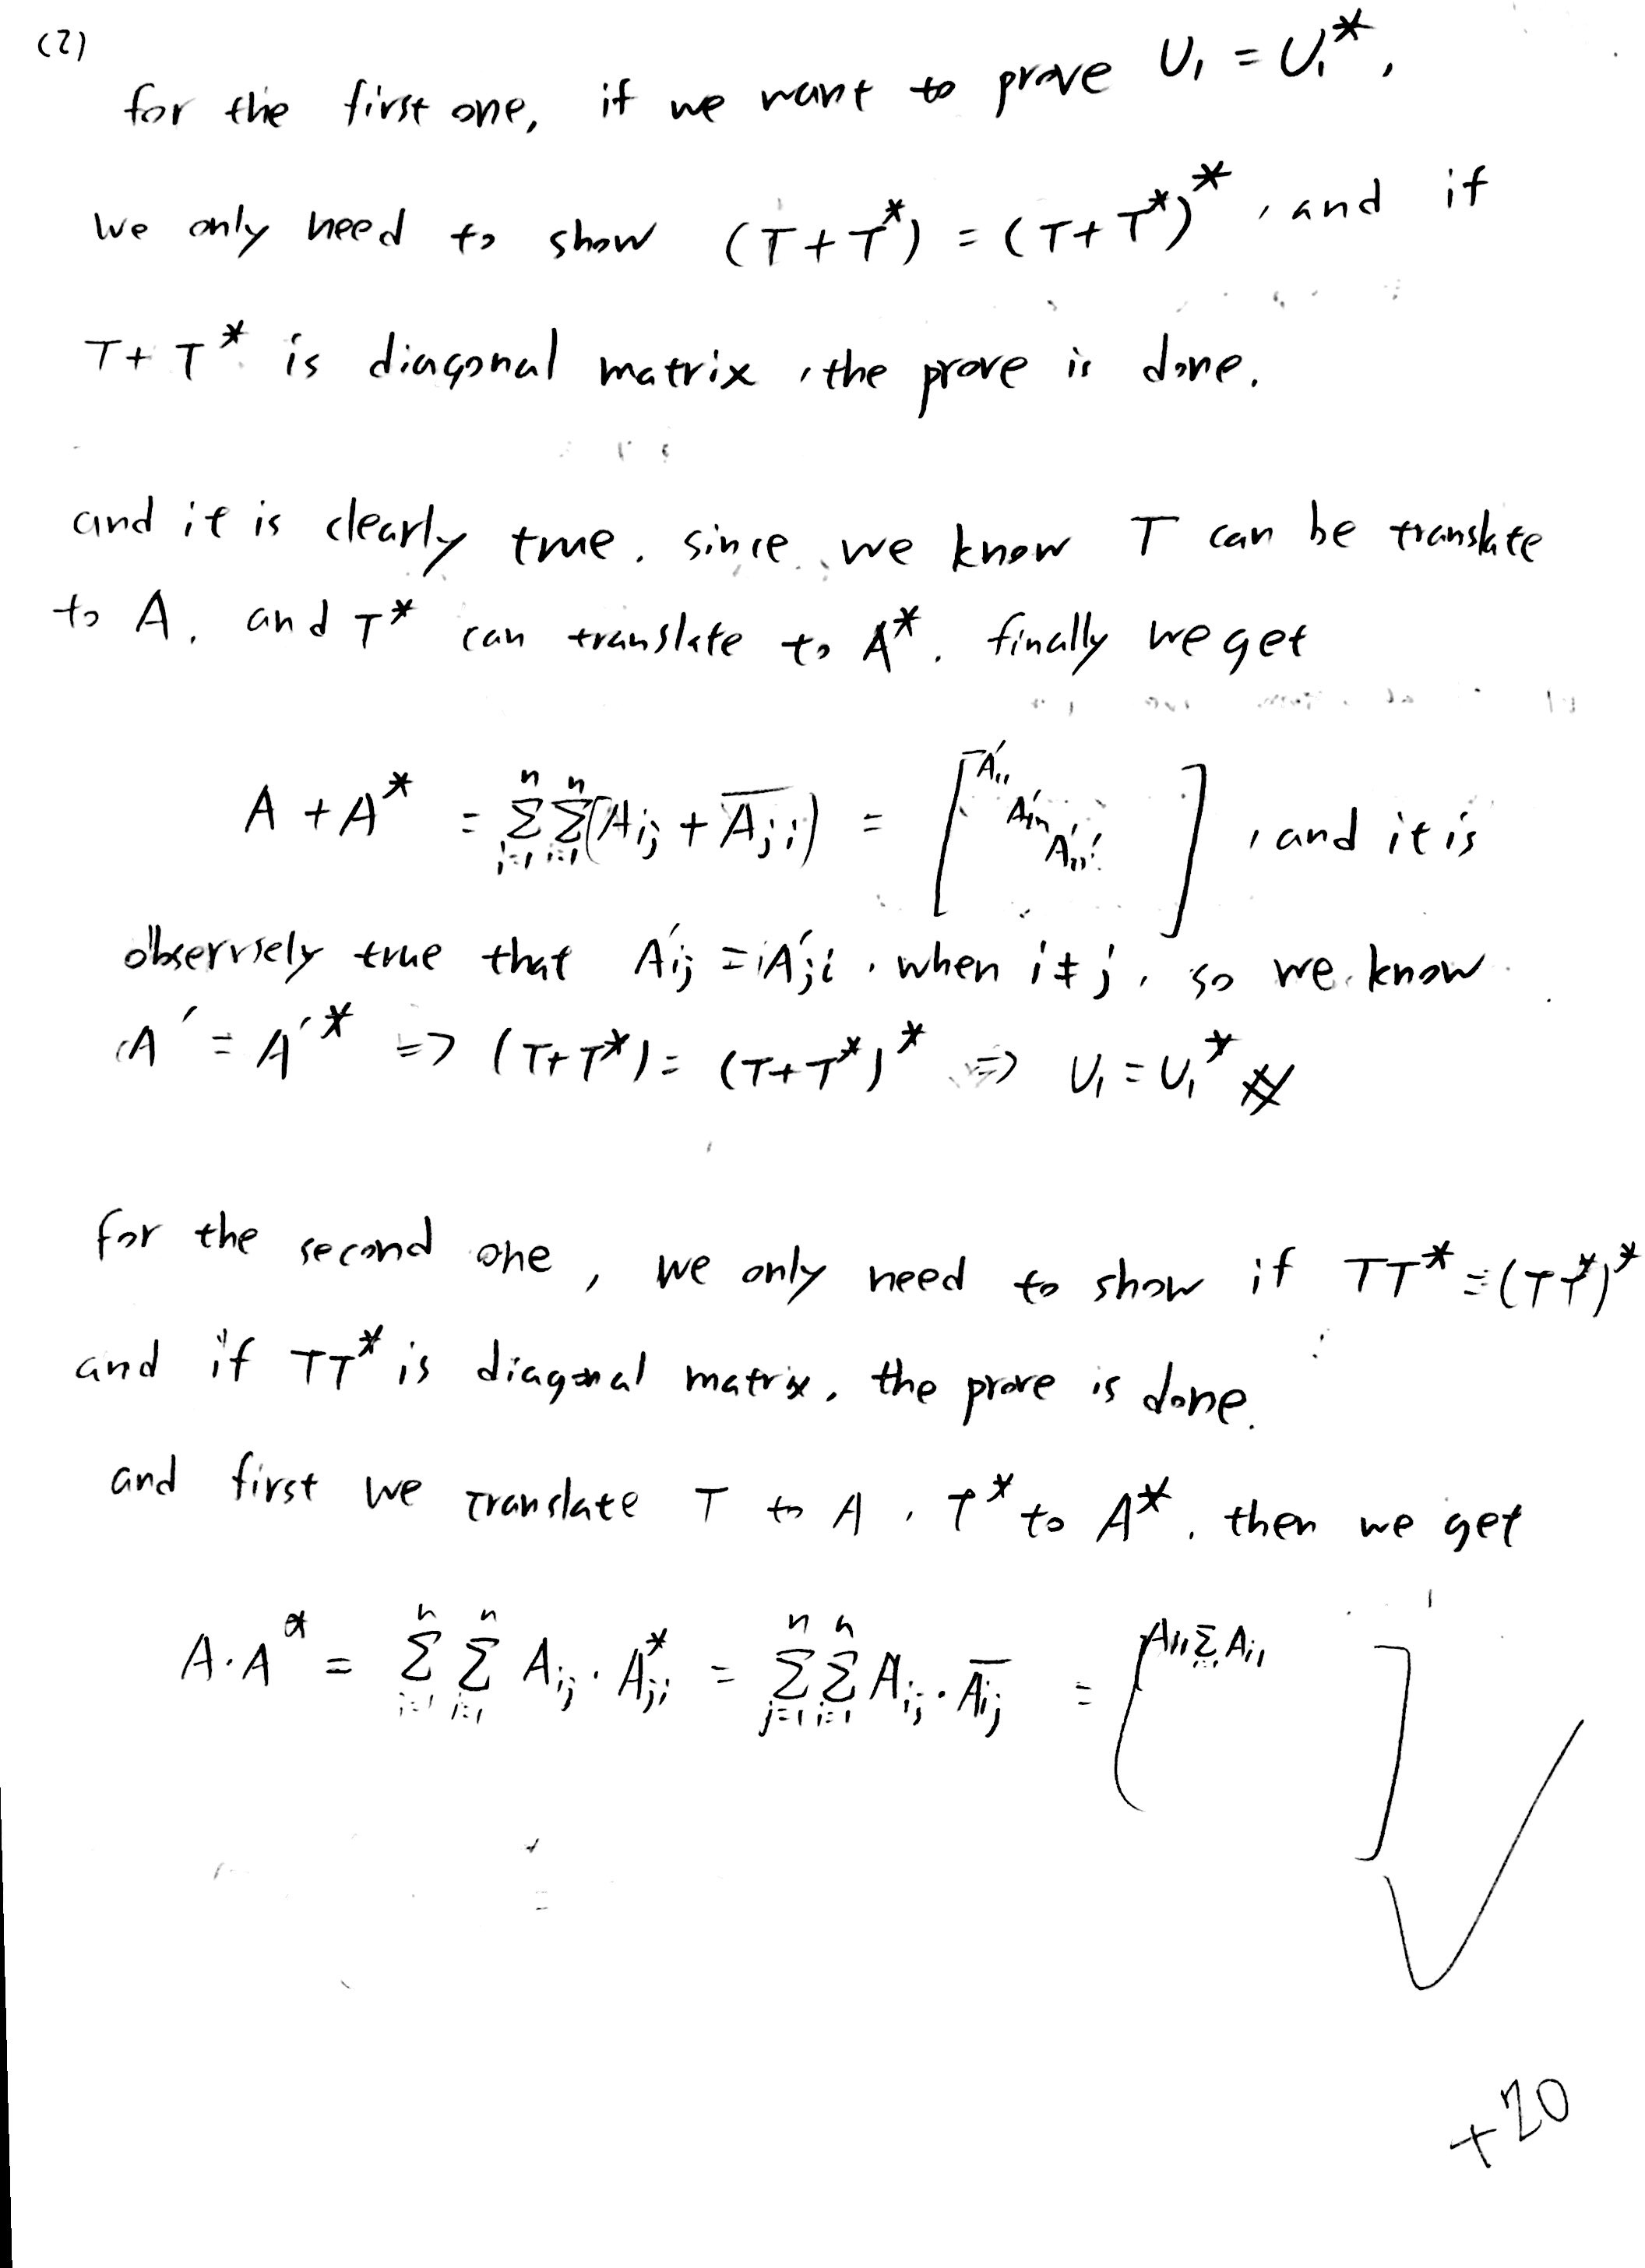 (2)
for the first one, if we want to prove U₁ = U₁*,
we only need to show (T+T*) = (T+T*)*, and if
T+T* is diagonal matrix, the prove is done.
and it is clearly true. since we know T can be translate
to A. and T* can translate to A*. finally we get
A + A* = Σⁿⱼ₌₁ Σⁿᵢ₌₁ (Aij + \overline{Aji}) = [ A'₁₁ ], and it is
obserrsely true that A'ij = A'ji, when i≠j, so we know
A' = A'* => (T+T*) = (T+T*)* => U₁ = U₁* #
for the second one, we only need to show if TT* = (TT*)*
and if TT* is diagonal matrix, the prove is done.
and first we translate T to A, T* to A*. then we get
A·A* = Σⁿᵢ₌₁ Σⁿᵢ₌₁ Aij · A*ji = Σⁿⱼ₌₁ Σⁿᵢ₌₁ Aij · \overline{Aij} = [ A₁₁ Σ Ai₁ ]
+20